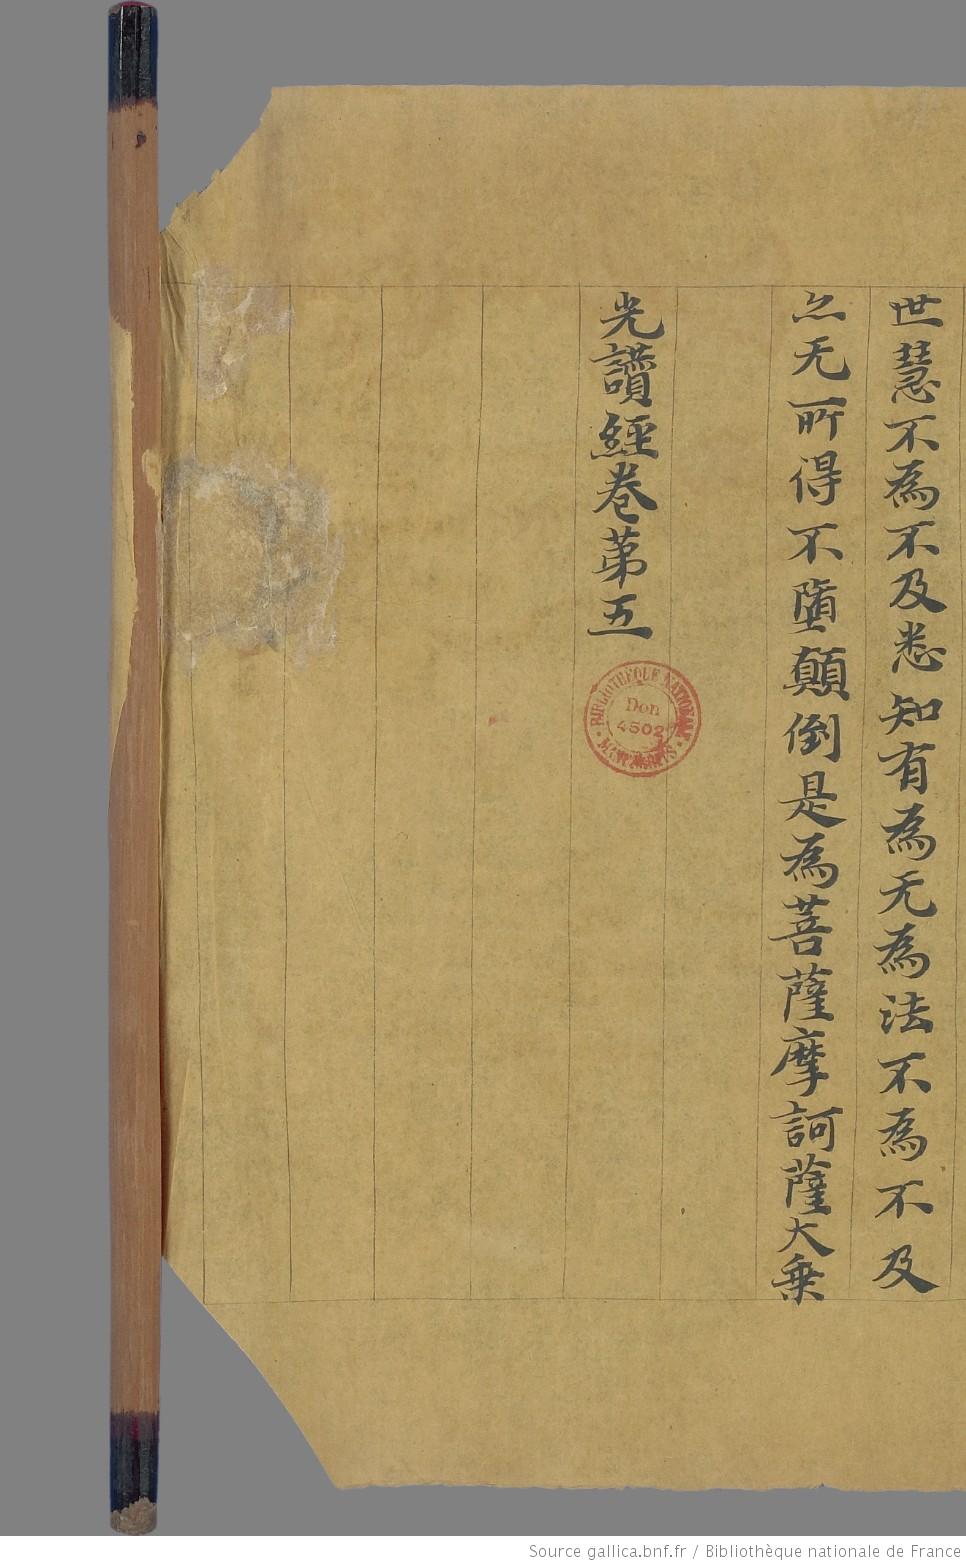 世慧不為不及悉知有為无為法不為不及
亦无所得不墮顛倒是為菩薩摩訶薩大乗
光讚經卷第五
BIBLIOTHÈQUE NATIONALE
Don
4502
MANUSCRITS
Source gallica.bnf.fr / Bibliothèque nationale de France